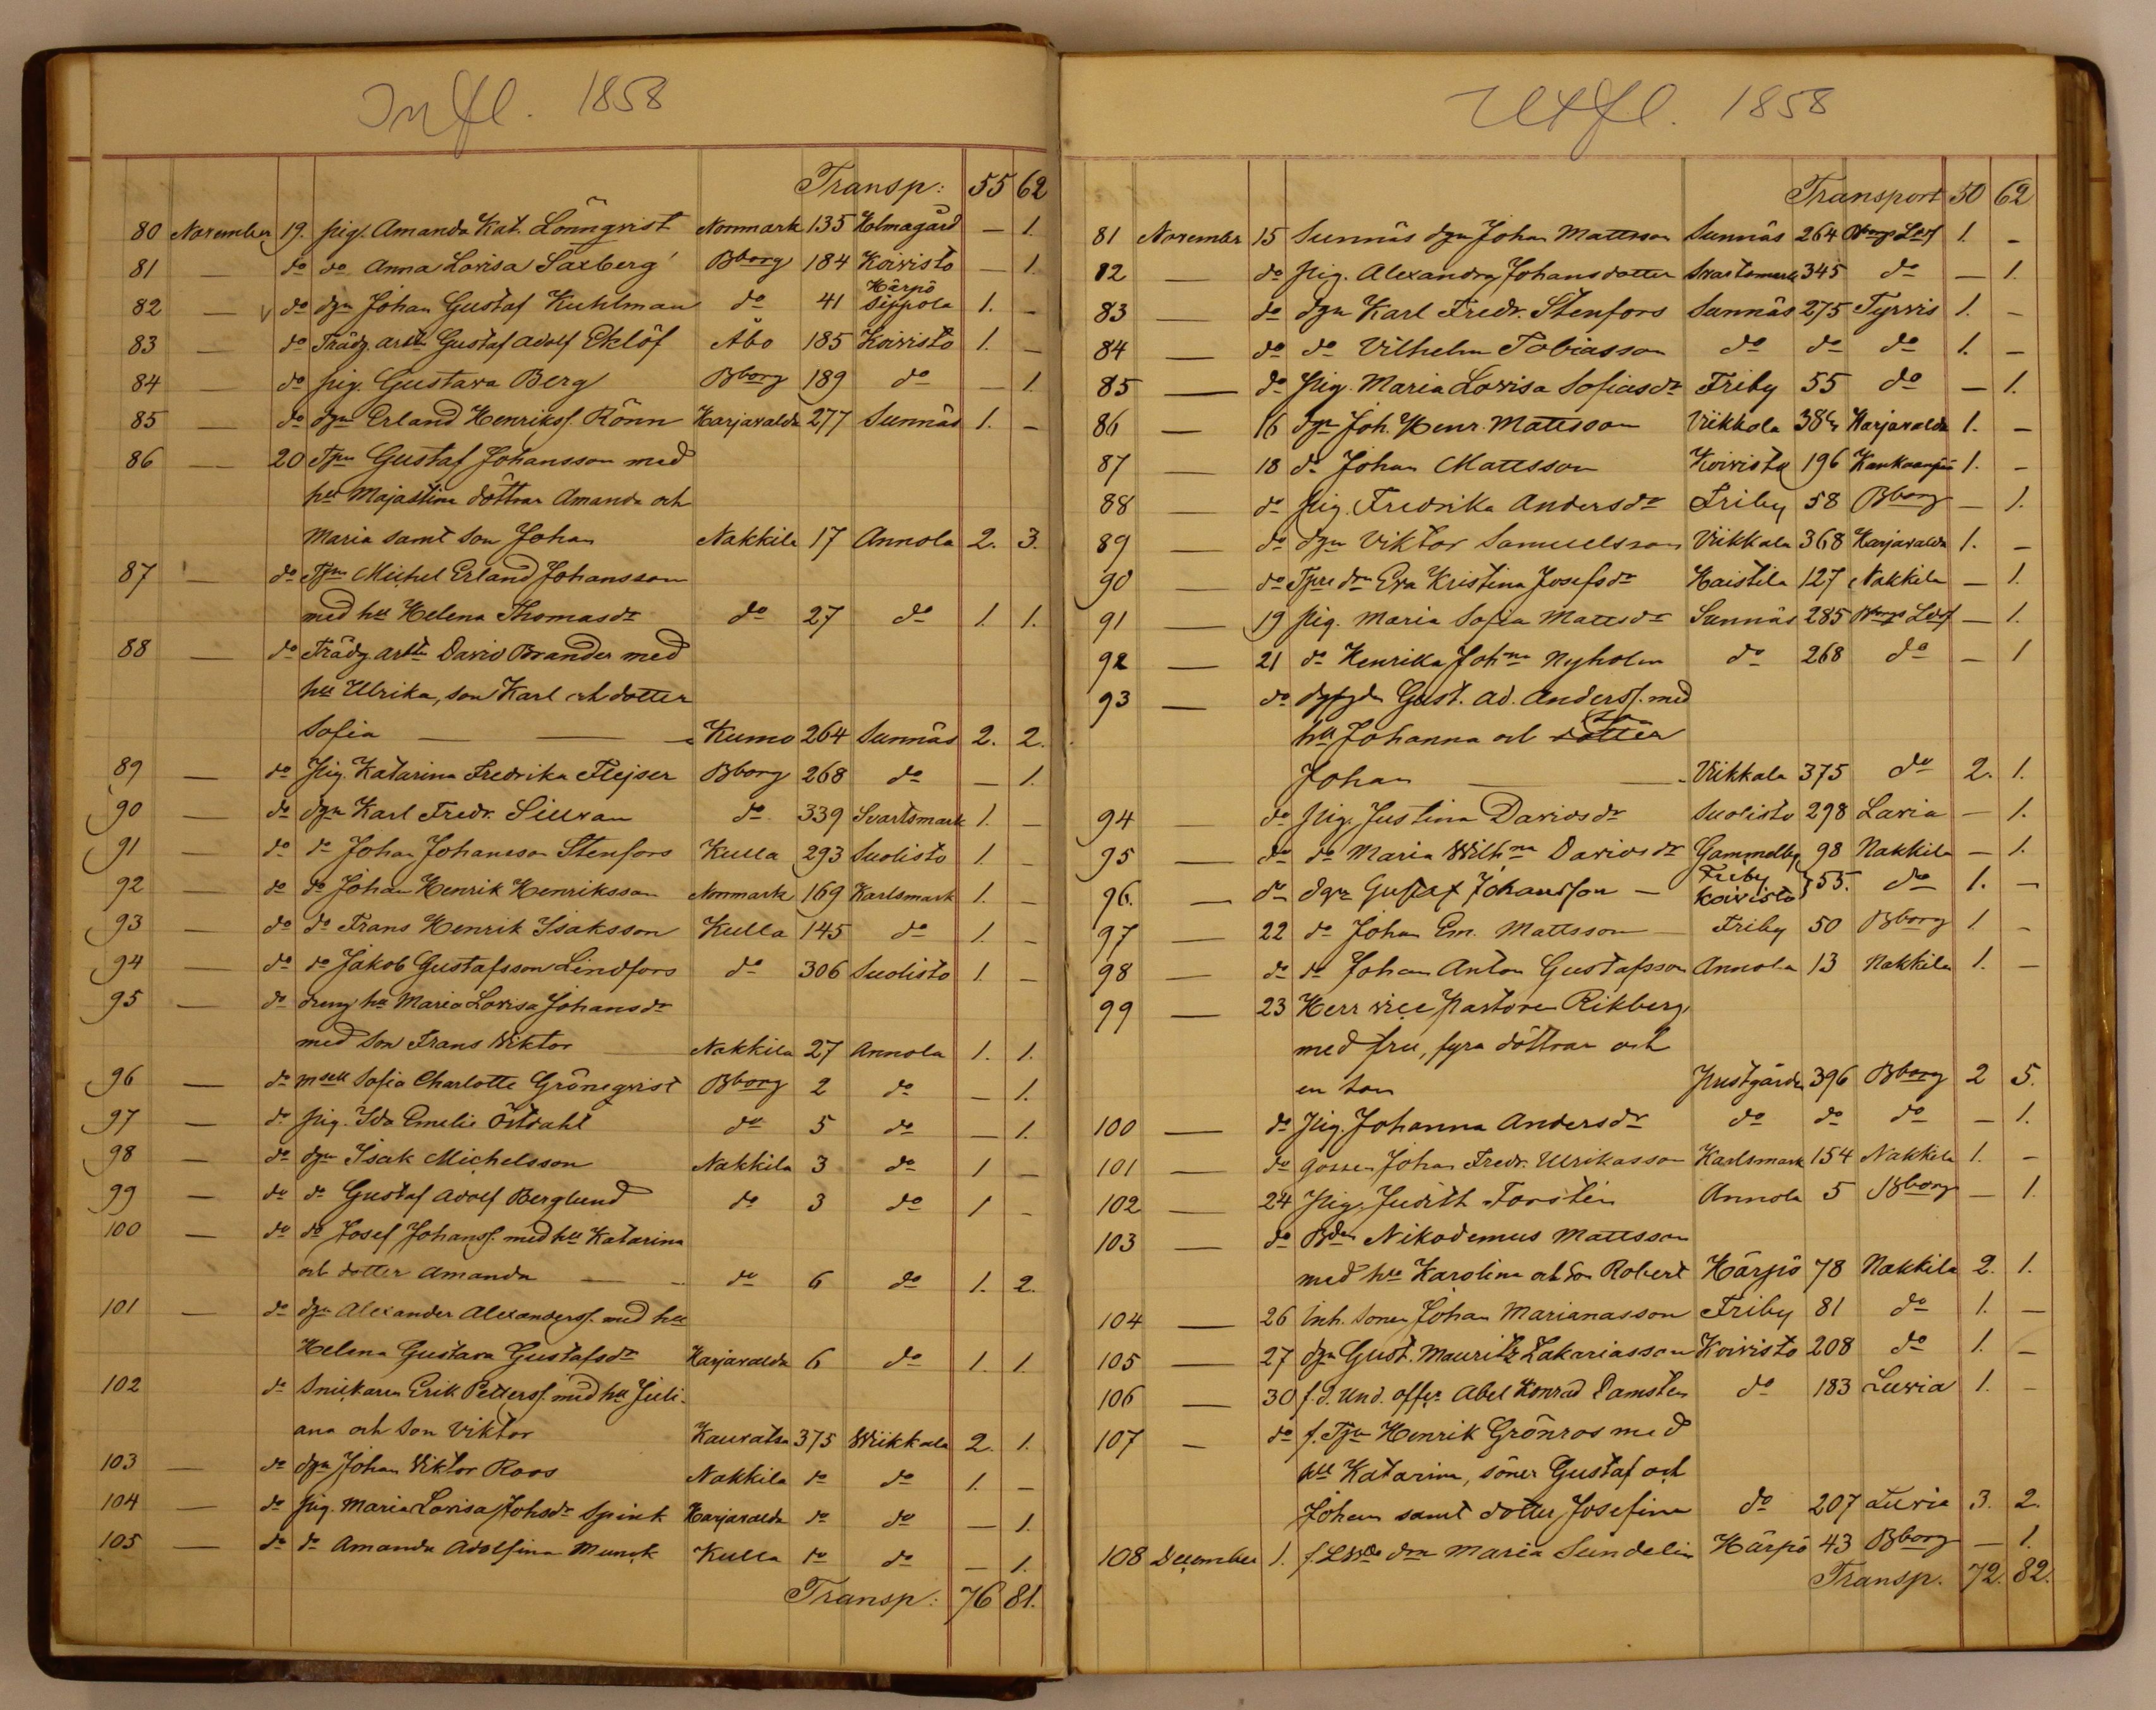 Infl. 1858
Transp: 55 62
80 November 19. pig. Amanda Kat. Lönnqvist Nommark 135 Holmagård — 1.
81 — do do Anna Lovisa Saxberg Bborg 184 Koivisto — 1.
Härpö
82 — do dgn Johan Gustaf Kuhlman do 41 Seppola 1. –
83 — do Trädg. arbtn Gustaf Adolf Eklöf Åbo 185 Koivisto 1. –
84 — do pig. Gustava Berg Bborg 189 do — 1.
85 — do dgn Erland Henrikss. Rönn Harjavalda 277 Sunnäs 1. –
86 — 20 Tpn Gustaf Johansson med
hu Majastina döttrar Amanda och
Maria samt son Johan Nakkila 17 Annola 2. 3.
87 — do Tpn Michel Erland Johansson
med hu Helena Thomasdr do 27 do 1. 1.
88 — do Trädg arbtn David Brander med
hu Ulrika, son Karl och dotter
Sofia — Kumo 264 Sunnäs 2. 2.
89 — do Pig. Katarina Fredrika Flejser Bborg 268 do — 1.
90 — do dgn Karl Fredr. Siuvan do 339 Svartsmark 1. –
91 — do do Johan Johansson Stenfors Kulla 293 Suolisto 1. –
92 — do do Johan Henrik Henriksson Nommark 169 Karlsmark 1. –
93 — do do Frans Henrik Isaksson Kulla 145 do 1. –
94 — do do Jakob Gustafsson Lindfors do 306 Suolisto 1. –
95 — do dreng hu Maria Lovisa Johansdr
med son Frans Wiktor Nakkila 27 Annola 1. 1.
96 — do msell Sofia Charlotte Grönqvist Bborg 2 do — 1.
97 — do pig. Ida Emelie Östdahl do 5 do — 1.
98 — do dgn Isak Michelsson Nakkila 3 do 1 –
99 — do do Gustaf Adolf Berglund do 3 do 1 –
100 — do do Josef Johanss. med hu Katarina
och dotter Amanda — do 6 do 1. 2.
101 — do dgn Alexander Alexanderss. med hu
Helena Gustava Gustafsdr Harjavalda 6 do 1. 1.
102 do Snickaren Erik Petterss. med hu Juli-
ana och son Viktor Kauvatsa 375 Wiikkala 2. 1.
103 — do dgn Johan Viktor Roos Nakkila do do 1. –
104 — do pig. Maria Lovisa Johsdr Spink Harjavalda do do — 1.
105 — do do Amanda Adolfina Munck Kulla do do — 1.
Transp: 76 81.
Utfl. 1858
Transport 50 62
81 November 15 Sunnäs dgn Johan Mattsson Sunnäs 264 Bborgs Ldsf 1. –
82 — do pig. Alexandra Johansdotter Svartsmark 345 do — 1.
83 — do dgn Karl Fredr. Stenfors Sunnäs 275 Tyrvis 1. –
84 — do do Vilhelm Tobiasson do do do 1. –
85 — do pig. Maria Lovisa Sofiasdr Friby 55 do — 1.
86 — 16 dgn Joh. Henr. Mattsson Viikkala 384 Harjavalda 1. –
87 — 18 do Johan Mattsson Koivisto 196 Kankaanpää 1. –
88 — do pig. Fredrika Andersdr Friby 58 Bborg — 1.
89 — do dgn Viktor Samuelsson Viikkala 368 Harjavalda 1. –
90 — do Tpre drn Eva Kristina Josefsdr Haistila 127 Nakkila — 1.
91 — 19 pig. Maria Sofia Mattsdr Sunnäs 285 Bborgs Ldsf — 1.
92 — 21 do Henrika Johna Nyholm do 268 do — 1
93 — do Gust. Ad. Anderss. med
son
hu Johanna och dotter
Johan — Viikkala 375 do 2. 1.
94 — do pig. Justina Davidsdr Suolisto 298 Lavia — 1.
95 — do do Maria Wilhna Davidsdr Gammelby 98 Nakkila — 1.
Friby
96. — do dgn Gustaf Johansson — Koivisto } 55. do 1. –
97 — 22 do Johan Em. Mattsson — Friby 50 Bborg 1 –
98 — do do Johan Anton Gustafsson Annola 13 Nakkila 1. –
99 — 23 Herr vice pastoren Rikberg
med fru, fyra döttrar och
en son Prestgården 396 Bborg 2 5.
100 — do Pig. Johanna Andersdr do do do — 1.
101 — do gossen Johan Fredr. Ulrikasson Karlsmark 154 Nakkila 1. –
102 — 24 Pig. Judith Forstén Annola 5 Bborg — 1.
103 — do Bdn Nikodemus Mattsson
med hu Karolina och son Robert Härpö 78 Nakkila 2. 1.
104 — 26 inh. sonen Johan Marianasson Friby 81 do 1. –
105 — 27 dgn Gust. Mauritz Zakariasson Koivisto 208 do 1. –
106 — 30 f.d. Und. offcr Abel Konrad Damsten do 183 Luvia 1. –
107 — do f. Tpn Henrik Grönroos med
hu Katarina, söner Gustaf och
Johan samt dotter Josefina do 207 Luvia 3. 2.
108 December 1. drn Maria Sundelin Härpö 43 Bborg — 1.
Transp. 72. 82.